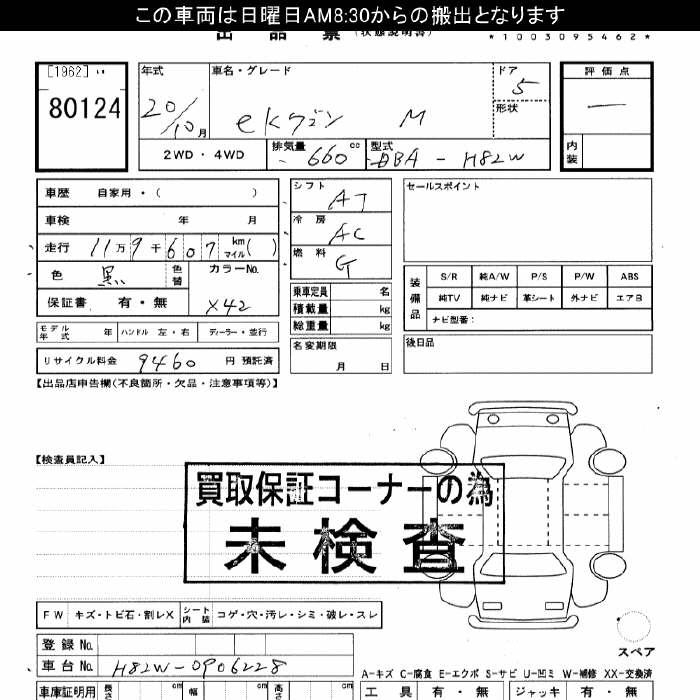 この車両は日曜日AM8:30からの搬出となります
出品票 (状態説明書)
*1003095462*
[1962]
80124
年式
20/10月
車名・グレード
eKワゴン M
ドア
5
形状
評価点
—
内装
2WD・4WD
排気量
660 cc
型式
DBA - H82W
車歴 自家用・( )
車検 年 月
走行 11万9千607 km マイル( )
色 黒 色替
カラーNo.
X42
保証書 有・無
モデル年式 年 ハンドル 左・右 ディーラー・並行
リサイクル料金 9460 円 預託済
シフト AT
冷房 AC
燃料 G
乗車定員 名
積載量 kg
総重量 kg
名変期限
月 日
セールスポイント
装備品
S/R 純A/W P/S P/W ABS
純TV 純ナビ 革シート 外ナビ エアB
ナビ型番:
後日品
【出品店申告欄(不良箇所・欠品・注意事項等)】
【検査員記入】
買取保証コーナーの為
未検査
FW キズ・トビ石・割レX シート内装 コゲ・穴・汚レ・シミ・破レ・スレ
登録No.
車台No. H82W-0906228
スペア
A-キズ C-腐食 E-エクボ S-サビ U-凹ミ W-補修 XX-交換済
車庫証明用 長さ cm 幅 cm 高さ cm
工具 有・無 ジャッキ 有・無